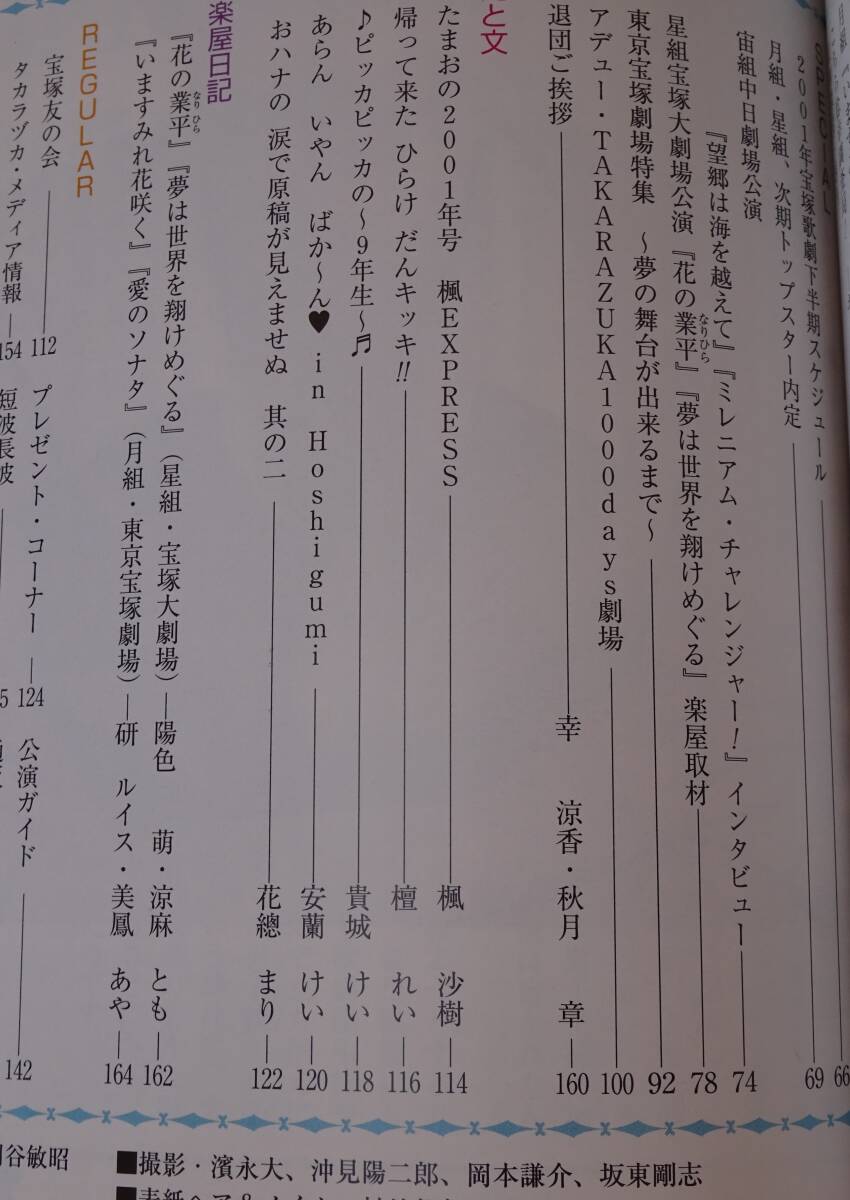 SPECIAL
2001年宝塚歌劇下半期スケジュール 66
月組・星組、次期トップスター内定 69
宙組中日劇場公演
『望郷は海を越えて』『ミレニアム・チャレンジャー!』インタビュー 74
星組宝塚大劇場公演『花の業平』『夢は世界を翔けめぐる』楽屋取材 78
なりひら
東京宝塚劇場特集 ～夢の舞台が出来るまで～ 92
アデュー・TAKARAZUKA1000days劇場 100
退団ご挨拶 幸 涼香・秋月 章 160
と文
たまおの2001年号 楓EXPRESS 楓 沙樹 114
帰って来た ひらけ だんキッキ!! 檀 れい 116
♪ピッカピッカの～9年生～♬ 貴城 けい 118
あらん いやん ばか～ん♥ in Hoshigumi 安蘭 けい 120
おハナの 涙で原稿が見えませぬ 其の二 花總 まり 122
楽屋日記
『花の業平』『夢は世界を翔けめぐる』（星組・宝塚大劇場） 陽色 萌・涼麻 とも 162
なりひら
『いますみれ花咲く』『愛のソナタ』（月組・東京宝塚劇場） 研 ルイス・美鳳 あや 164
REGULAR
宝塚友の会 112
プレゼント・コーナー 124
公演ガイド 142
タカラヅカ・メディア情報 154
短波長波
谷敏昭
■撮影・濱永大、沖見陽二郎、岡本謙介、坂東剛志